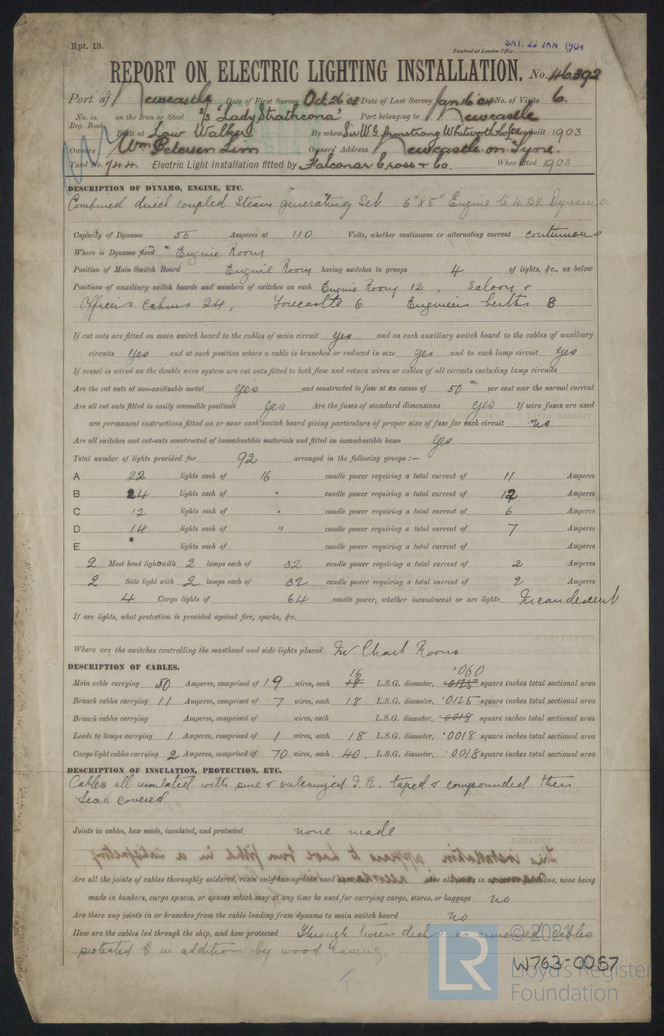 Rpt. 13.
Received at London Office SAT. 23 JAN 1904
REPORT ON ELECTRIC LIGHTING INSTALLATION. No. 46392
Port of Newcastle Date of First Survey Oct 26 03 Date of Last Survey Jan 16 04 No. of Visits 6.
No. in Reg. Book on the Iron or Steel S/S "Lady Strathcona" Port belonging to Newcastle
Built at Low Walker By whom Sir W. G. Armstrong Whitworth & Co built 1903
Owners Wm Petersen Lim Owners' Address Newcastle on Tyne.
Yard No. 744 Electric Light Installation fitted by Falconar Cross & Co. When fitted 1903
DESCRIPTION OF DYNAMO, ENGINE, ETC.
Combined direct coupled Steam generating Set 6" x 5" Engine Dynamo
Capacity of Dynamo 55 Amperes at 110 Volts, whether continuous or alternating current continuous
Where is Dynamo fixed Engine Room
Position of Main Switch Board Engine Room having switches to groups 4 of lights, &c., as below
Positions of auxiliary switch boards and numbers of switches on each Engine Room 12, Saloon &
Officers Cabins 24, Forecastle 6 Engineers berths 8
If cut outs are fitted on main switch board to the cables of main circuit yes and on each auxiliary switch board to the cables of auxiliary
circuits yes and at each position where a cable is branched or reduced in size yes and to each lamp circuit yes
If vessel is wired on the double wire system are cut outs fitted to both flow and return wires or cables of all circuits including lamp circuits
Are the cut outs of non-oxidizable metal yes and constructed to fuse at an excess of 50 per cent over the normal current
Are all cut outs fitted in easily accessible positions yes Are the fuses of standard dimensions yes If wire fuses are used
are permanent instructions fitted on or near each switch board giving particulars of proper size of fuse for each circuit no
Are all switches and cut-outs constructed of incombustible materials and fitted on incombustible bases yes
Total number of lights provided for 92 arranged in the following groups :—
A 22 lights each of 16 candle power requiring a total current of 11 Amperes
B 24 lights each of " candle power requiring a total current of 12 Amperes
C 12 lights each of " candle power requiring a total current of 6 Amperes
D 14 lights each of " candle power requiring a total current of 7 Amperes
E lights each of candle power requiring a total current of Amperes
2 Mast head light with 2 lamps each of 32 candle power requiring a total current of 2 Amperes
2 Side light with 2 lamps each of 32 candle power requiring a total current of 2 Amperes
4 Cargo lights of 64 candle power, whether incandescent or arc lights Incandescent
If arc lights, what protection is provided against fire, sparks, &c.
Where are the switches controlling the masthead and side lights placed In Chart Room
DESCRIPTION OF CABLES.
Main cable carrying 50 Amperes, comprised of 19 wires, each 16 L.S.G. diameter, .060 square inches total sectional area
Branch cables carrying 11 Amperes, comprised of 7 wires, each 18 L.S.G. diameter, .0125 square inches total sectional area
Branch cables carrying Amperes, comprised of wires, each L.S.G. diameter, .0018 square inches total sectional area
Leads to lamps carrying 1 Amperes, comprised of 1 wires, each 18 L.S.G. diameter, .0018 square inches total sectional area
Cargo light cables carrying 2 Amperes, comprised of 70 wires, each 40 L.S.G. diameter, .0018 square inches total sectional area
DESCRIPTION OF INSULATION, PROTECTION, ETC.
Cables all insulated with pure & vulcanized I. R. taped & compounded then
Lead covered
Joints in cables, how made, insulated, and protected none made
Are all the joints of cables thoroughly soldered, resin only having been used in positions, none being
made in bunkers, cargo spaces, or spaces which may at any time be used for carrying cargo, stores, or baggage no
Are there any joints in or branches from the cable leading from dynamo to main switch board no
How are the cables led through the ship, and how protected Through tween decks as armoured cables
protected & in addition by wood casing.
© 2021
LR Lloyd's Register
Foundation
W763-0057